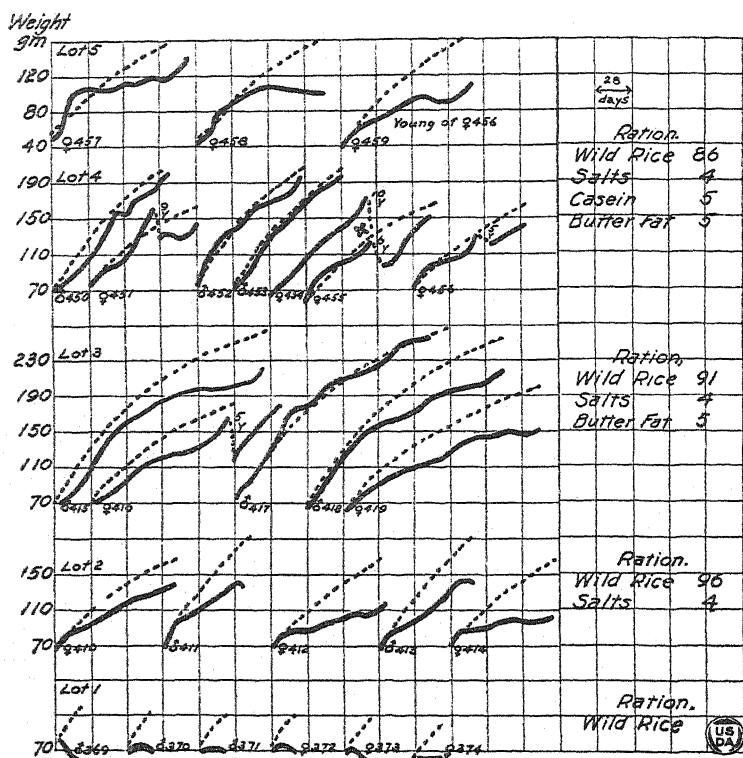 Weight
gm Lot 5
120
80
40
♀457 ♀458 ♀459 Young of ♀456
28
days
Ration.
Wild Rice 86
Salts 4
Casein 5
Butter Fat 5
Lot 4
190
150
110
70
♂450 ♀451 ♂452 ♂453 ♀454 ♀455 ♀456
Lot 3
230
190
150
110
70
5 Y
♂415 ♀416 ♂417 ♂418 ♀419
Ration,
Wild Rice 91
Salts 4
Butter Fat 5
Lot 2
150
110
70
♀410 ♂411 ♀412 ♂413 ♀414
Ration.
Wild Rice 96
Salts 4
Lot 1
70
♂369 ♂370 ♂371 ♀372 ♀373 ♀374
Ration.
Wild Rice
US
DA